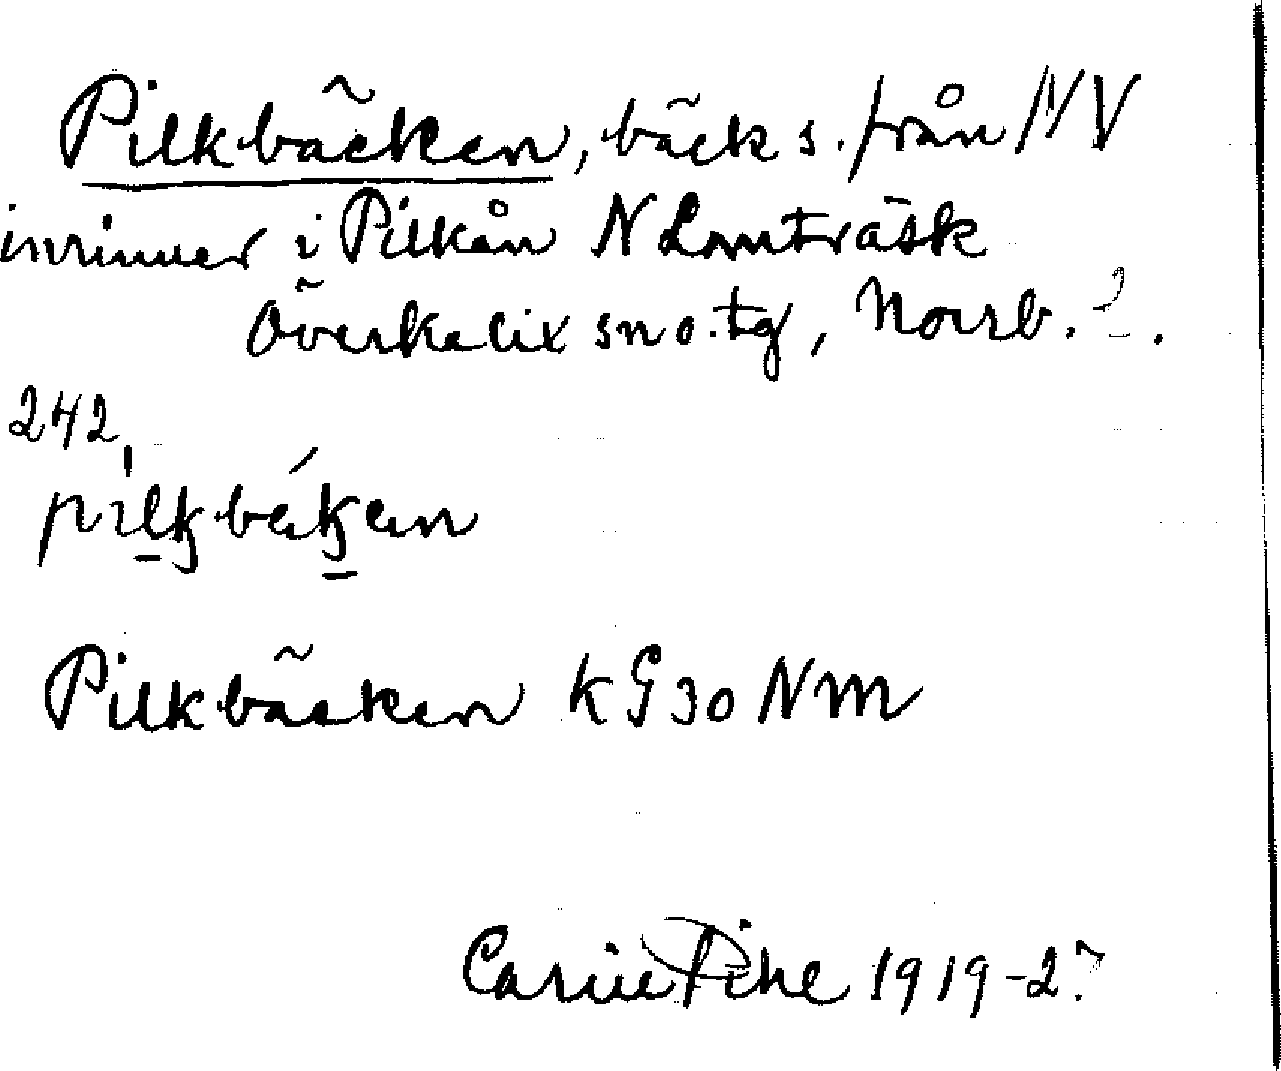 Pilkbäcken, bäck s. från NV
inrinner i Pilkån N Lomträsk
Överkalix sn o. tg, Norrb. 
242
pilkbäken
Pilkbäcken KG 30 NM
Carin Pihl 1919-2?